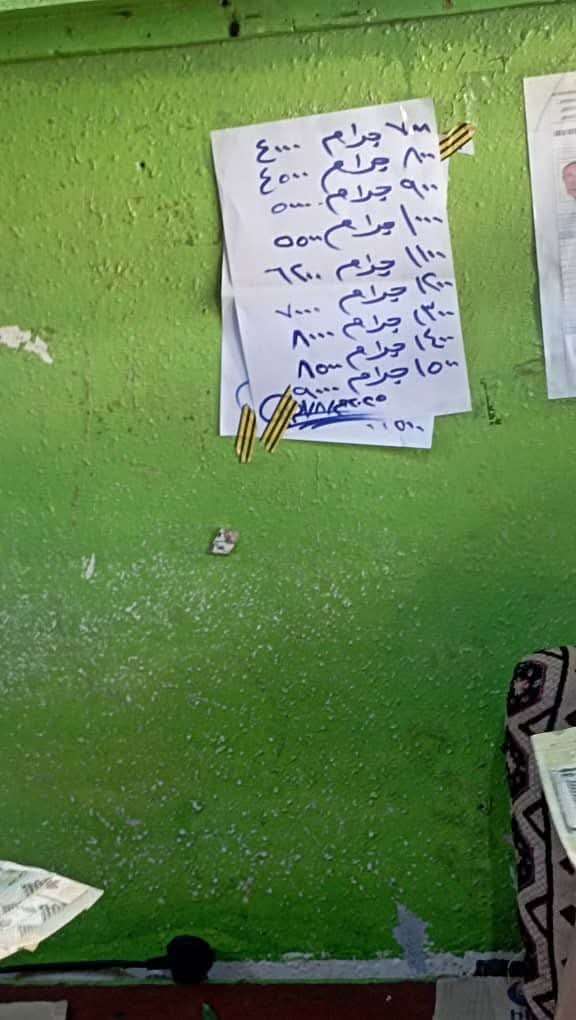 ٧٠٠ جرام ٤٠٠٠
٨٠٠ جرام ٤٥٠٠
٩٠٠ جرام ٥٠٠٠
١٠٠٠ جرام ٥٥٠٠
١١٠٠ جرام ٦٢٠٠
١٢٠٠ جرام ٧٠٠٠
١٣٠٠ جرام ٨٠٠٠
١٤٠٠ جرام ٨٥٠٠
١٥٠٠ جرام ٩٠٠٠